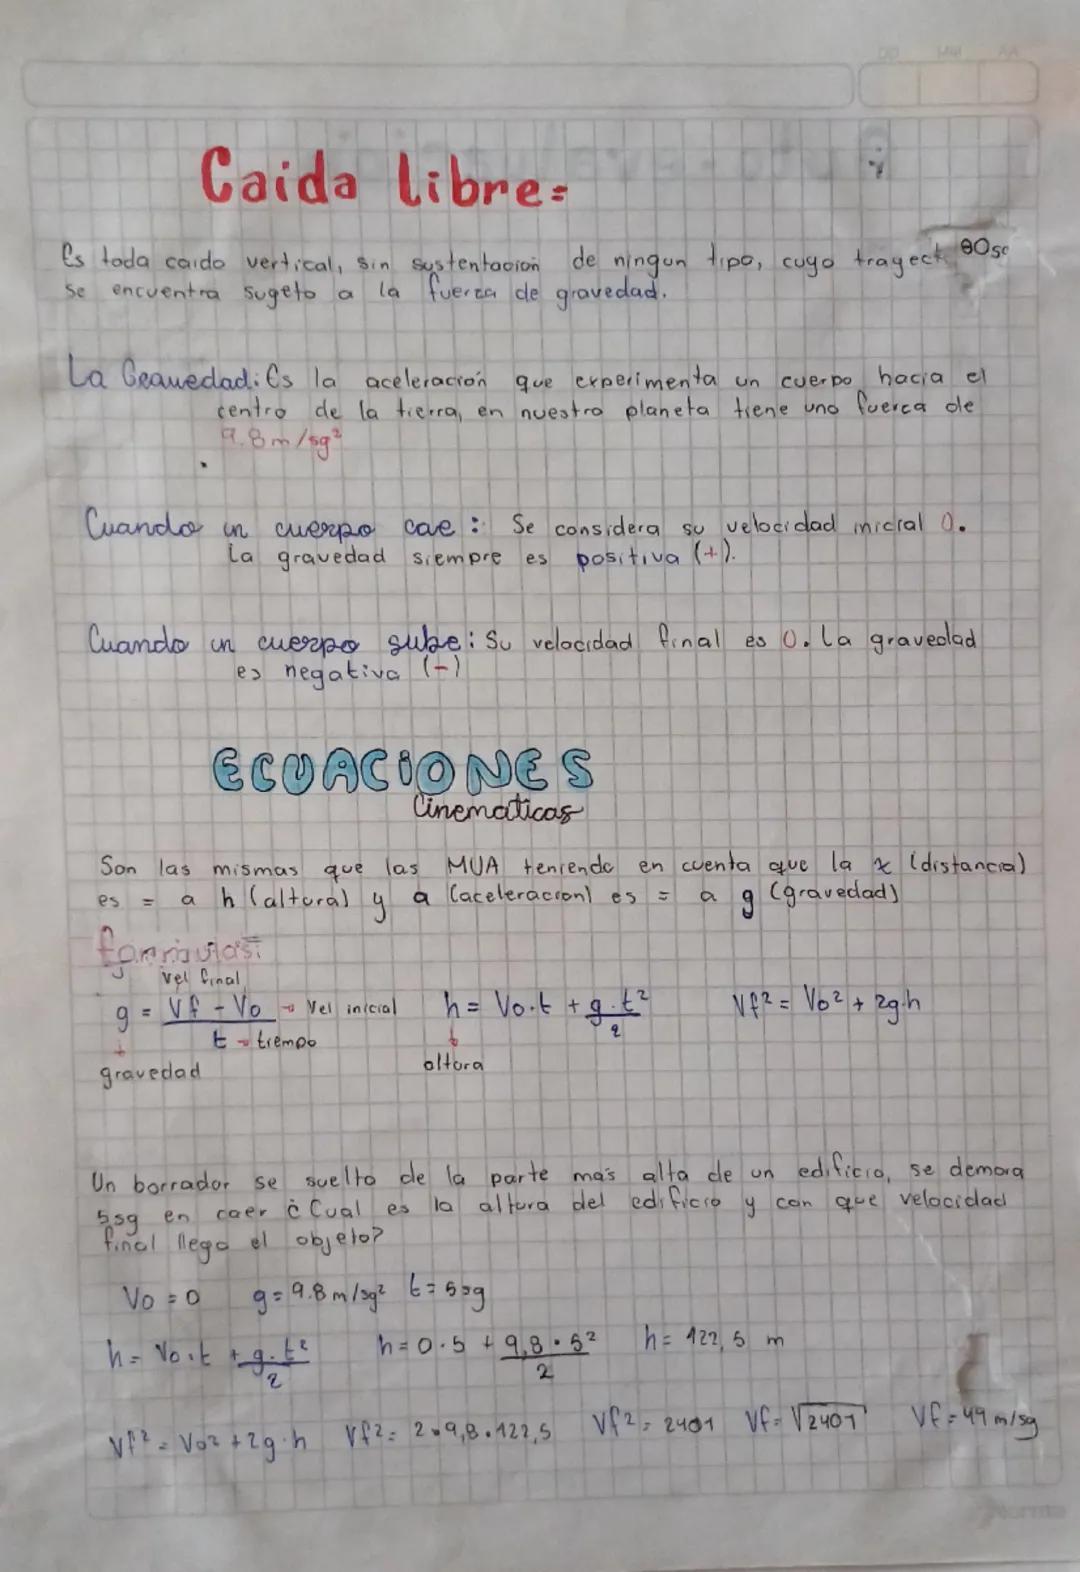 Caida libre=
Es toda caida vertical, sin sustentacion de ningun tipo, cuyo trayect
se encuentra sugeto a la fuerza de gravedad.
La Gravedad: Es la aceleración que experimenta un cuerpo hacia el
centro de la tierra, en nuestro planeta tiene una fuerca de
9.8m/sg²
Cuando un cuerpo cae: Se considera su velocidad inicial 0.
La gravedad siempre es positiva (+).
Cuando un cuerpo sube: Su velocidad final es 0. La gravedad
es negativa (-)
ECUACIONES
Cinematicas
Son las mismas que las MUA teniendo en cuenta que la x (distancia)
es = a h (altura) y a (aceleracion) es = a g (gravedad)
formulas:
vel final
g = Vf - Vo → Vel inicial h = Vo.t + g.t² Vf² = Vo² + 2g.h
t → tiempo 2
gravedad altura
Un borrador se suelta de la parte más alta de un edificio, se demora
5sg en caer ¿Cual es la altura del edificio y con que velocidad
final llega el objeto?
Vo = 0 g = 9.8 m/sg² t = 5sg
h = Vo.t + g.t² h = 0.5 + 9,8 . 5² h = 122,5 m
2 2
Vf² = Vo² + 2g.h Vf² = 2.9,8.122,5 Vf² = 2401 Vf = √2401 Vf = 49 m/sg